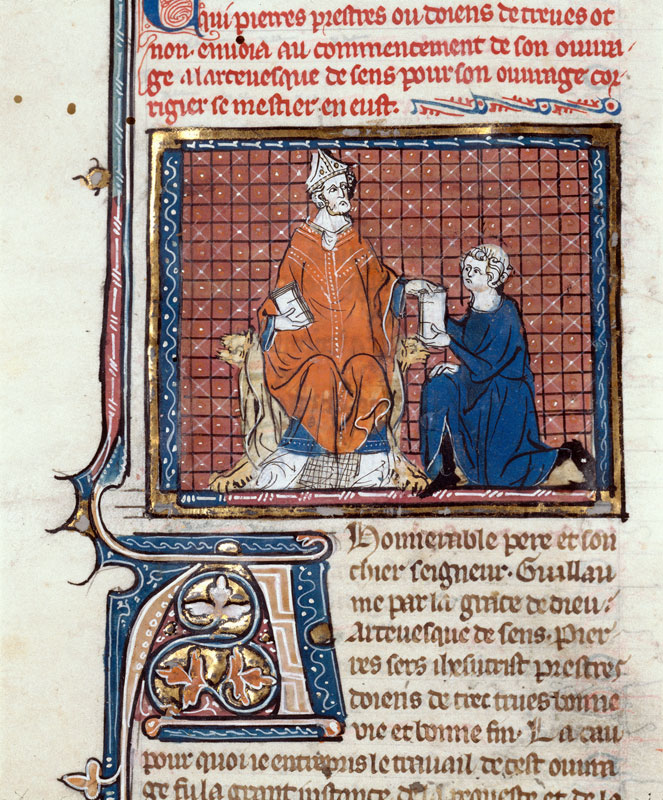 qui pierres prestres ou doiens de treues ot
non. enuoia au commencement de son ouura
ge a larceuesque de sens pour son ouurage cor
rigier se mestier en eust.
A honnerable pere et son
chier seigneur. Guillau
me par la grace de dieu.
Arceuesque de sens. Pier
res sers ihesucrist prestres
doiens de trues bonne
vie et bonne fin. La cau
pour quoi ie entrepris le trauail de cest ouura
ge fu la grant instance de la requeste et de la